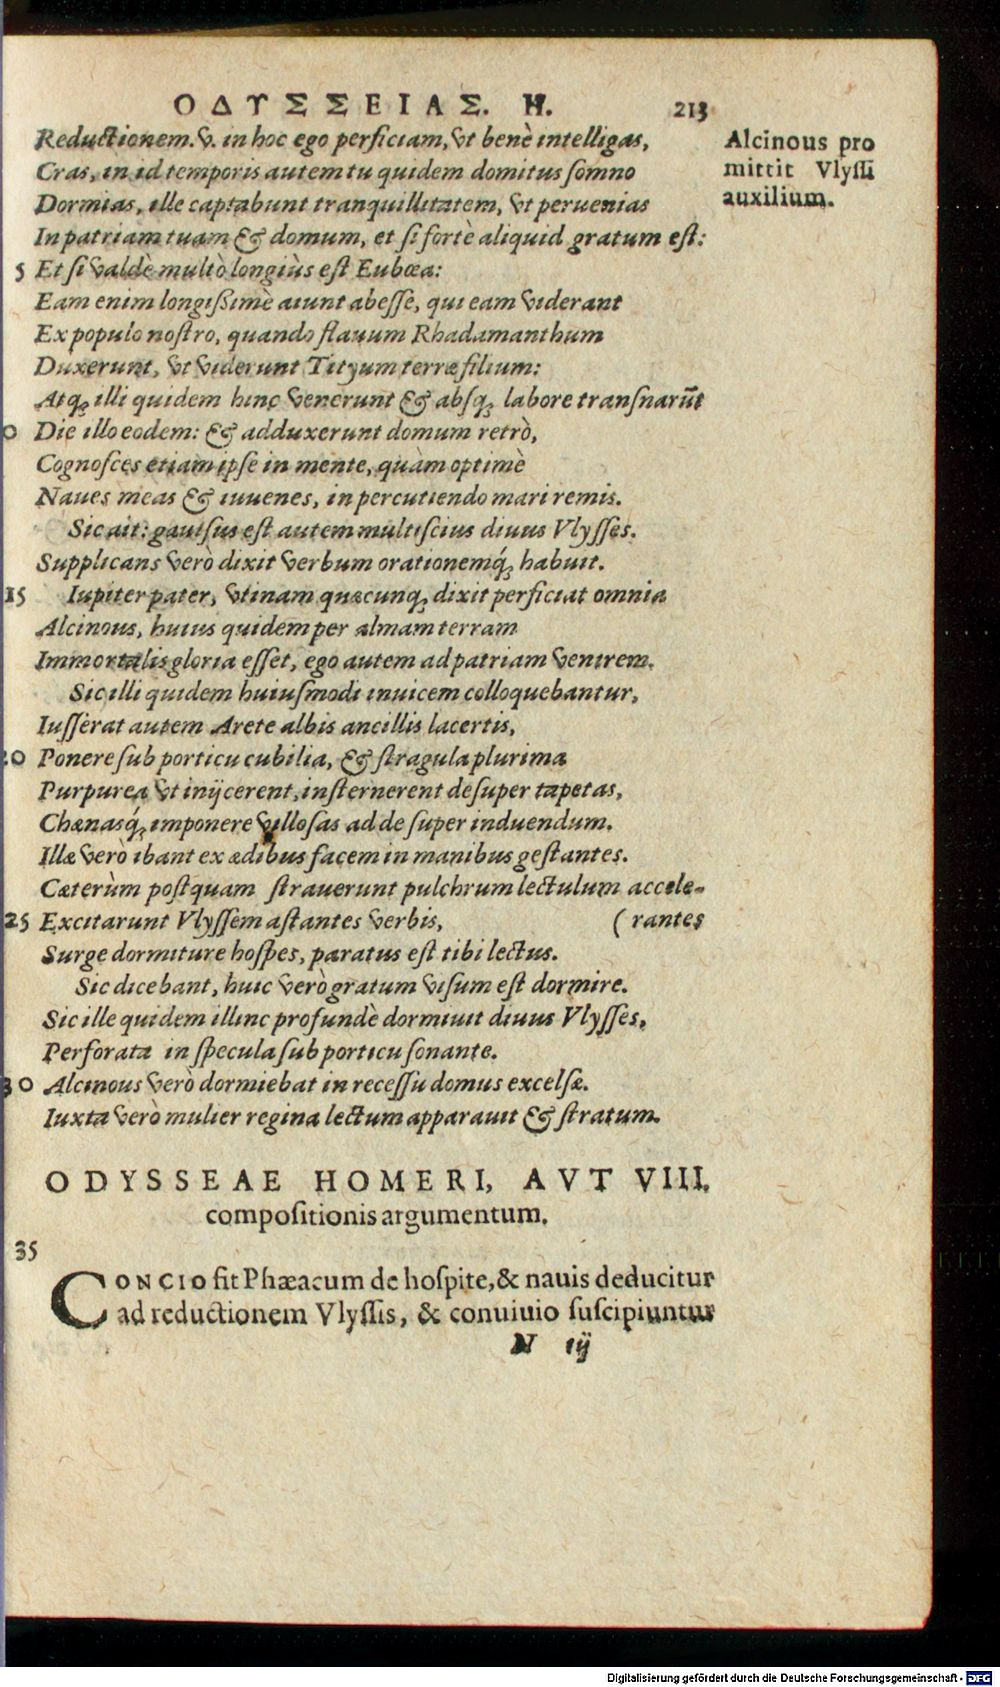 ΟΔΥΣΣΕΙΑΣ. Η. 213
Reductionem. v. in hoc ego perficiam, vt benè intelligas,
Cras, in id temporis autem tu quidem domitus somno
Dormias, ille captabunt tranquillitatem, vt peruenias
In patriam tuam & domum, et si fortè aliquid gratum est:
5 Et si valdè multò longiùs est Eubœa:
Eam enim longißimè aiunt abesse, qui eam viderant
Ex populo nostro, quando flauum Rhadamanthum
Duxerunt, vt viderunt Tityum terræ filium:
Atq; illi quidem hinc venerunt & absq; labore transnarūt
0 Die illo eodem: & adduxerunt domum retrò,
Cognosces etiam ipse in mente, quàm optimè
Naues meas & iuuenes, in percutiendo mari remis.
Sic ait: gauisus est autem multiscius diuus Vlysses.
Supplicans verò dixit verbum orationemq́; habuit.
15 Iupiter pater, vtinam quæcunq; dixit perficiat omnia
Alcinous, huius quidem per almam terram
Immortalis gloria esset, ego autem ad patriam venirem.
Sic illi quidem huiusmodi inuicem colloquebantur,
Iusserat autem Arete albis ancillis lacertis,
20 Ponere sub porticu cubilia, & stragula plurima
Purpurea vt inijcerent, insternerent desuper tapetas,
Chænasq́; imponere villosas ad de super induendum.
Illæ verò ibant ex ædibus facem in manibus gestantes.
Cæterùm postquam strauerunt pulchrum lectulum accele-
25 Excitarunt Vlyssem astantes verbis, (rantes
Surge dormiture hospes, paratus est tibi lectus.
Sic dicebant, huic verò gratum visum est dormire.
Sic ille quidem illinc profundè dormiuit diuus Vlysses,
Perforata in specula sub porticu sonante.
30 Alcinous verò dormiebat in recessu domus excelsæ.
Iuxta verò mulier regina lectum apparauit & stratum.
Alcinous pro
mittit Vlyssi
auxilium.
ODYSSEAE HOMERI, AVT VIII.
compositionis argumentum.
35
CONCIO fit Phæacum de hospite, & nauis deducitur
ad reductionem Vlyssis, & conuiuio suscipiuntur
N iij
Digitalisierung gefördert durch die Deutsche Forschungsgemeinschaft - DFG